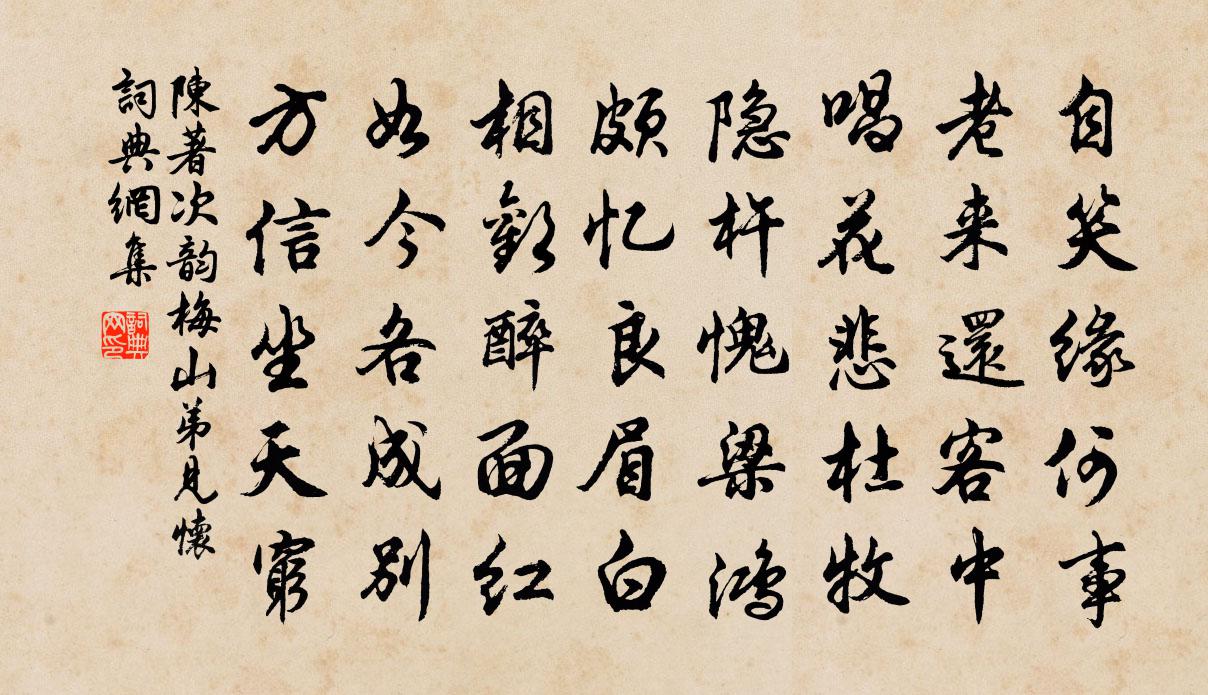 自笑缘何事
老来還客中
唱花悲杜牧
隐杵愧梁鸿
颇忆良眉白
相歡醉面红
如今各成别
方信坐天窮
陳著次韵梅山弟見懷
詞典網集
詞典网印